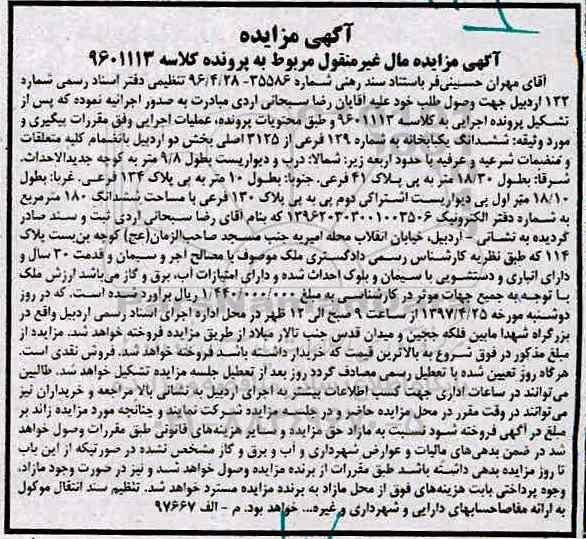 آگهی مزایده
آگهی مزایده مال غیرمنقول مربوط به پرونده کلاسه ۹۶۰۱۱۱۳
آقای مهران حسینی‌فر باستناد سند رهنی شماره ۳۵۵۸۶- ۹۶/۴/۲۸ تنظیمی دفتر اسناد رسمی شماره
۱۲۲ اردبیل جهت وصول طلب خود علیه آقایان رضا سبحانی اردی مبادرت به صدور اجرائیه نموده که پس از
تشکیل پرونده اجرایی به کلاسه ۹۶۰۱۱۱۳ و طبق محتویات پرونده، عملیات اجرایی وفق مقررات پیگیری و
مورد وثیقه: ششدانگ یکبابخانه به شماره ۱۲۹ فرعی از ۳۱۲۵ اصلی بخش دو اردبیل بانضمام کلیه متعلقات
و منضمات شرعیه و عرفیه با حدود اربعه زیر: شمالا: درب و دیواریست بطول ۹/۸ متر به کوچه جدیدالاحداث.
شرقا: بطول ۱۸/۳۰ متر به پی پلاک ۴۱ فرعی. جنوبا: بطول ۱۰ متر به پی پلاک ۱۳۴ فرعی. غربا: بطول
۱۸/۱۰ متر اول پی دیواریست اشتراکی دوم پی به پی پلاک ۱۳۰ فرعی با مساحت ششدانگ ۱۸۰ مترمربع
به شماره دفتر الکترونیک ۱۳۹۶۲۰۳۰۳۰۰۱۰۰۳۵۰۶ که بنام آقای رضا سبحانی اردی ثبت و سند صادر
گردیده به نشانی - اردبیل، خیابان انقلاب محله امیریه جنب مسجد صاحب‌الزمان(عج) کوچه بن‌بست پلاک
۱۱۴ که طبق نظریه کارشناس رسمی دادگستری ملک موصوف با مصالح اجر و سیمان و قدمت ۳۰ سال و
دارای انباری و دستشویی با سیمان و بلوک احداث شده و دارای امتیازات آب، برق و گاز می‌باشد ارزش ملک
با توجه به جمیع جهات موثر در کارشناسی به مبلغ ۱/۴۴۰/۰۰۰/۰۰۰ ریال برآورد شده است. که در روز
دوشنبه مورخه ۱۳۹۷/۴/۲۵ از ساعت ۹ صبح الی ۱۲ ظهر در محل اداره اجرای اسناد رسمی اردبیل واقع در
بزرگراه شهدا مابین فلکه ججین و میدان قدس جنب تالار میلاد از طریق مزایده فروخته خواهد شد. مزایده از
مبلغ مذکور در فوق شروع به بالاترین قیمت که خریدار داشته باشد فروخته خواهد شد. فروش نقدی است.
هرگاه روز تعیین شده با تعطیل رسمی مصادف گردد روز بعد از تعطیل جلسه مزایده تشکیل خواهد شد. طالبین
می‌توانند در ساعات اداری جهت کسب اطلاعات بیشتر به اجرای اردبیل به نشانی بالا مراجعه و خریداران نیز
می‌توانند در وقت مقرر در محل مزایده حاضر و در جلسه مزایده شرکت نمایند و چنانچه مورد مزایده زائد بر
مبلغ در آگهی فروخته شود نسبت به مازاد حق مزایده و سایر هزینه‌های قانونی طبق مقررات وصول خواهد
شد در ضمن بدهی‌های مالیات و عوارض شهرداری و آب و برق و گاز مشخص نشده در صورتیکه از این باب
تا روز مزایده بدهی داشته باشد طبق مقررات از برنده مزایده وصول خواهد شد و نیز در صورت وجود مازاد،
وجوه پرداختی بابت هزینه‌های فوق از محل مازاد به برنده مزایده مسترد خواهد شد. تنظیم سند انتقال موکول
به ارائه مفاصاحسابهای دارایی و شهرداری و غیره... خواهد بود. م - الف ۹۷۶۶۷